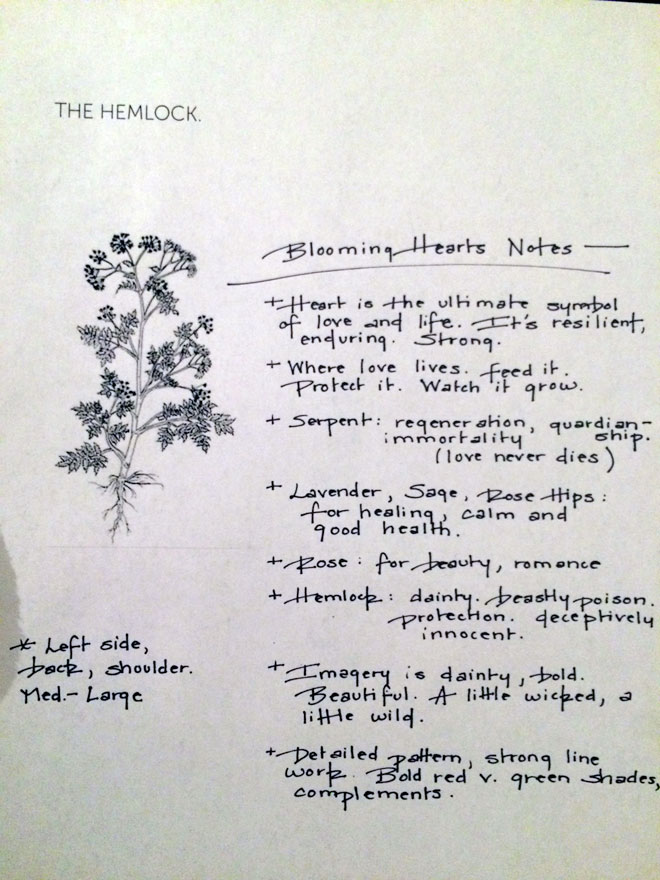 THE HEMLOCK.
Blooming Hearts Notes —
+ Heart is the ultimate symbol
of love and life. It's resilient,
enduring. Strong.
+ Where love lives. Feed it.
Protect it. Watch it grow.
+ Serpent: regeneration, guardian-
immortality ship.
(love never dies)
+ Lavender, Sage, Rose Hips:
for healing, calm and
good health.
+ Rose: for beauty, romance
+ Hemlock: dainty. beastly poison.
protection. deceptively
innocent.
* Left side,
back, shoulder.
Med.- Large
+ Imagery is dainty, bold.
Beautiful. A little wicked, a
little wild.
+ Detailed pattern, strong line
work. Bold red v. green shades,
complements.